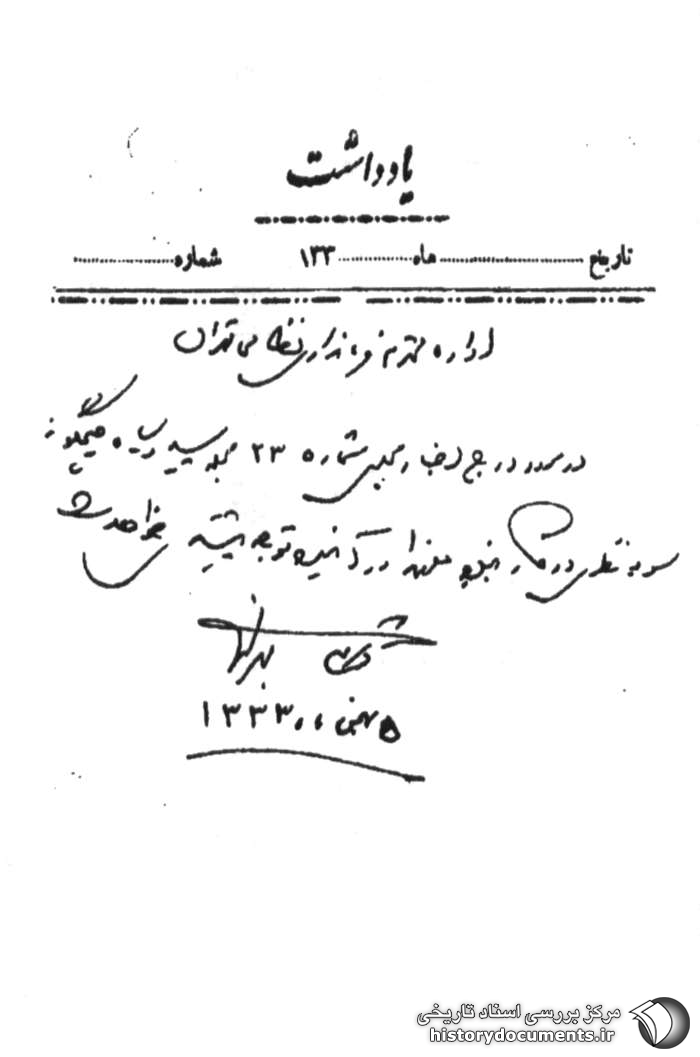 یادداشت
تاریخ ........ ماه ........ ۱۳۳ شماره ........
اداره محترم فرمانداری نظامی تهران
در مورد درج اخبار مجلس شماره ۲۳ مجله سپید و سیاه هیچگونه
سوء نظری در کار نبوده در آتیه توجه بیشتری خواهد شد
۵ بهمن ۱۳۳۳
مرکز بررسی اسناد تاریخی
historydocuments.ir